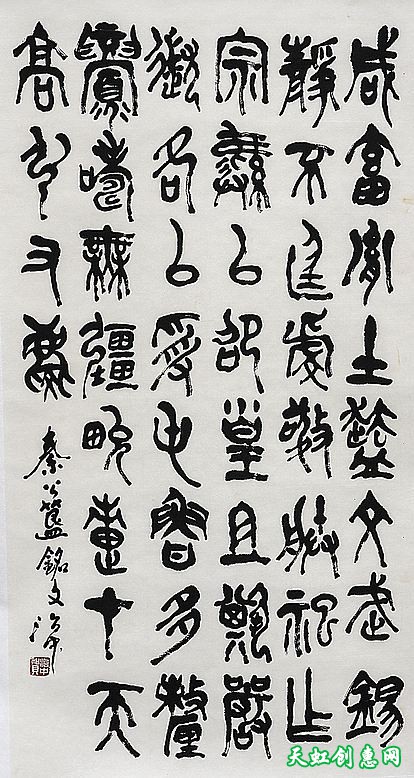 咸畜胤士趩文武錫
靜不廷虔敬朕祀乍
宗彝以卲皇且其嚴
各以受屯魯多釐
眉壽無疆畯疐才天
高弘又慶
秦公簋銘文
天虹创惠网